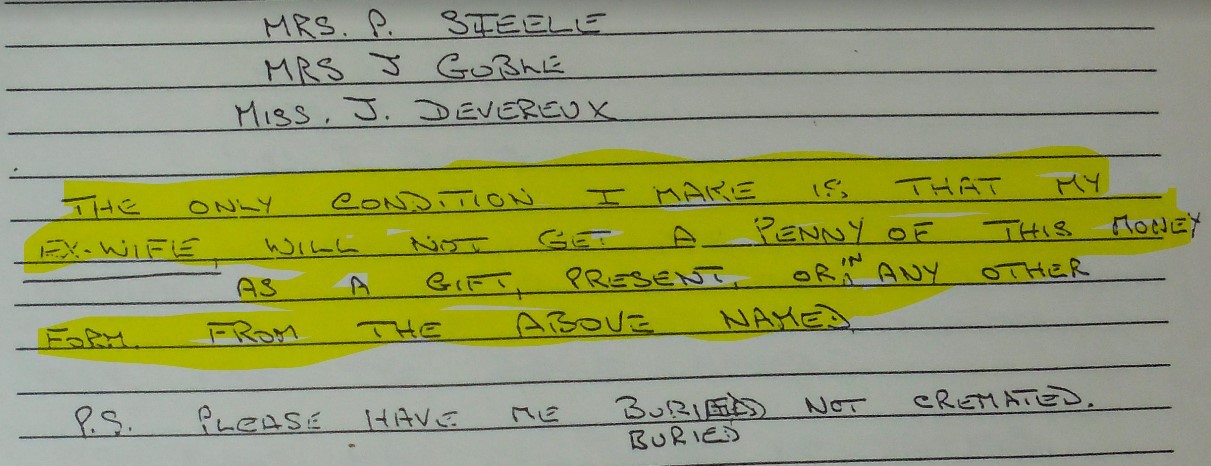 MRS. P. STEELE
MRS J GOBLE
MISS. J. DEVEREUX
THE ONLY CONDITION I MAKE IS THAT MY
EX-WIFE, WILL NOT GET A PENNY OF THIS MONEY
AS A GIFT, PRESENT, OR IN ANY OTHER
FORM. FROM THE ABOVE NAMED.
P.S. PLEASE HAVE ME BURIED NOT CREMATED.
BURIED